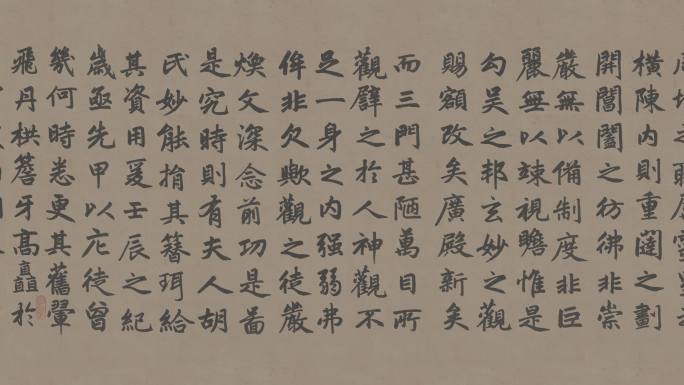 橫陳内則重闥之劃
開閶闔之彷彿非崇
嚴無以備制度非巨
麗無以竦視瞻惟是
勾吴之邦玄妙之觀
賜額改矣廣殿新矣
而三門甚陋萬目所
觀譬之於人神觀不
足一身之内强弱弗
侔非欠歟觀之徒嚴
煥文深念前功是啚
是究時則有夫人胡
氏妙能捐其簪珥給
其資用爰壬辰之紀
歲亟先甲以庀徒曾
幾何時悉更其舊翬
飛丹栱簷牙高矗於